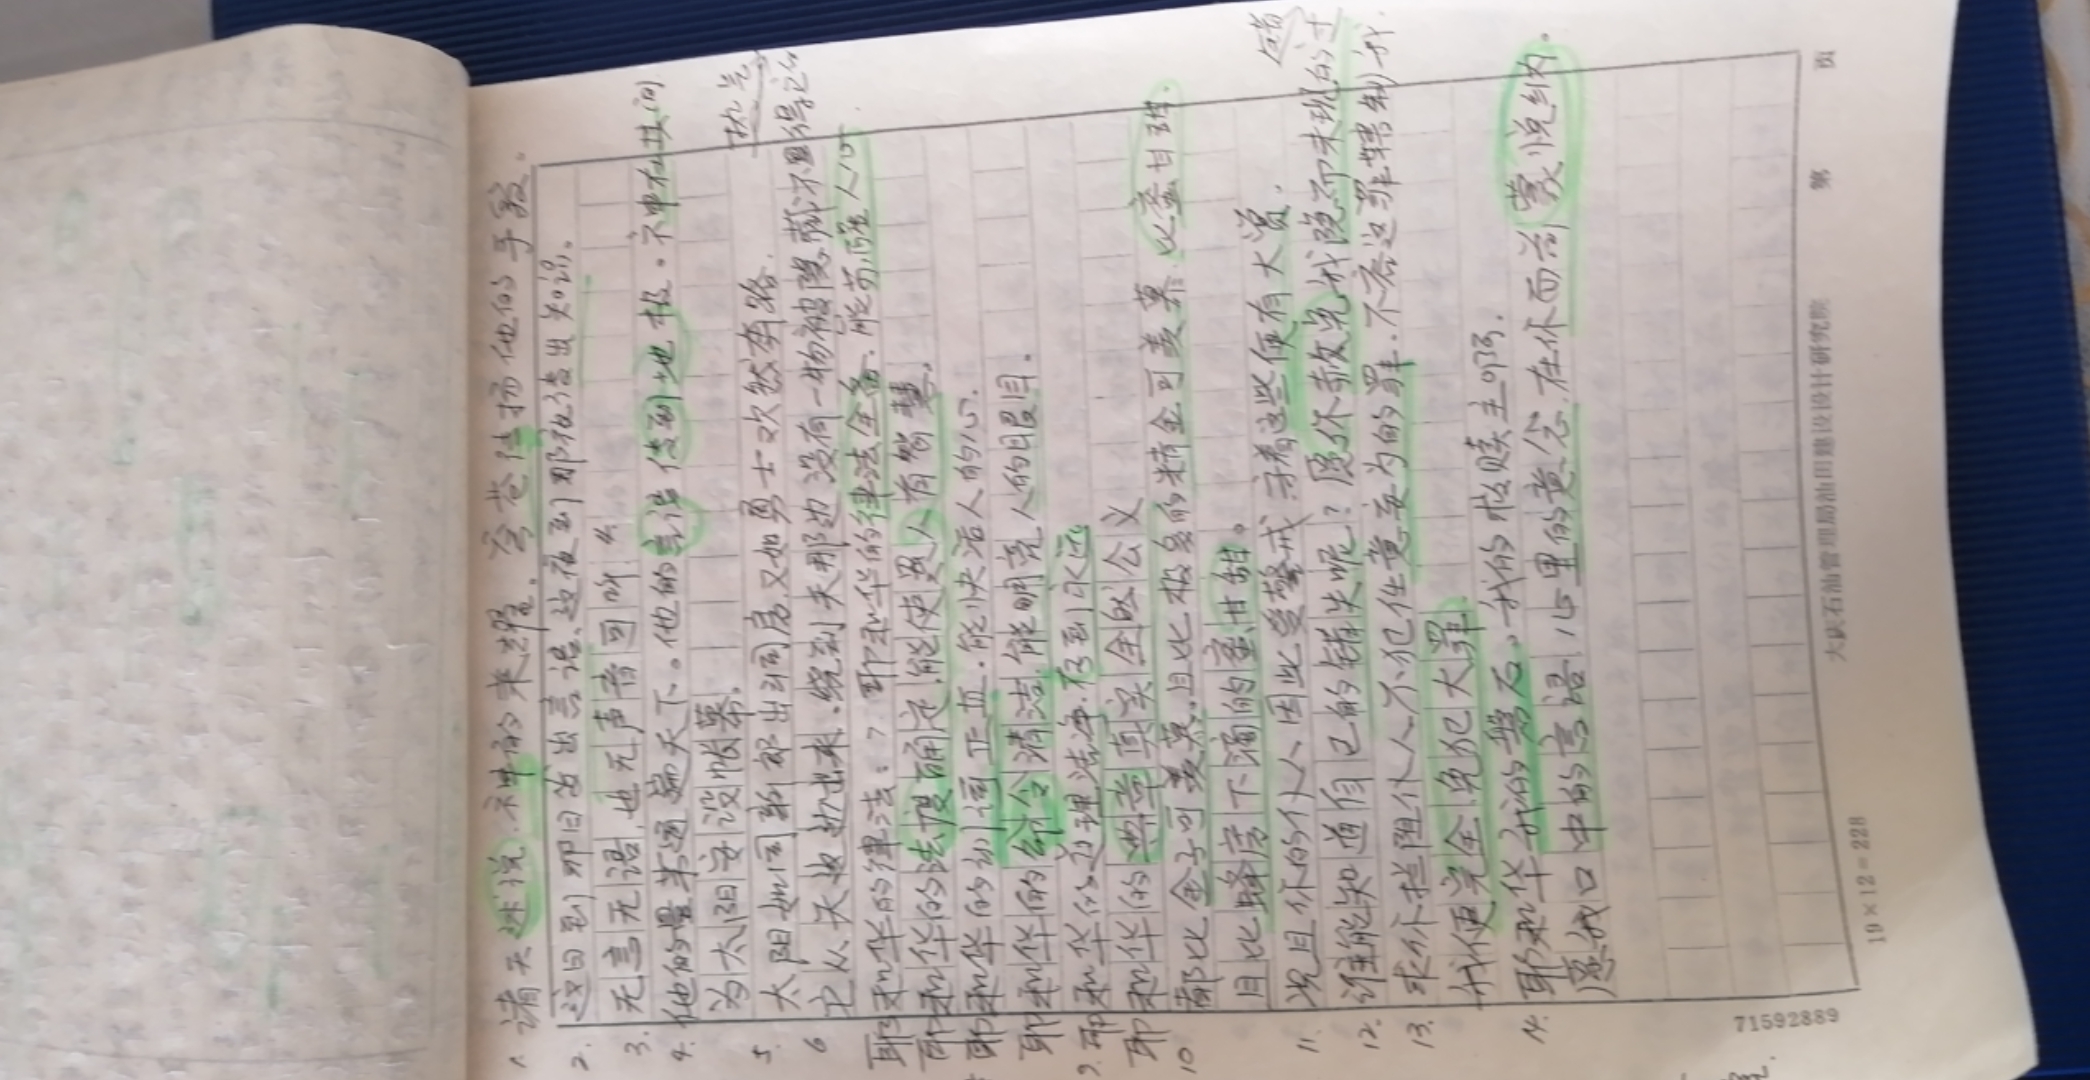 1. 诸天述说神的荣耀。穹苍传扬他的手段。
2. 这日到那日发出言语,这夜到那夜传出知识。
3. 无言无语,也无声音可听
4. 他的量带通遍天下。他的言语传到地极。神在其间
为太阳安设帐幕。
5. 太阳如同新郎出洞房,又如勇士欢然奔路.
6 它从天这边出来,绕到天那边没有一物被隐藏不得
耶和华的律法:7 耶和华的律法全备.能苏醒人心
耶和华的法度确定,能使愚人有智慧。
耶和华的训词正直.能快活人的心.
耶和华的命令清洁.能明亮人的眼目.
9. 耶和华的道理洁净.存到永远.
耶和华的典章真实全然公义
10 都比金子可羡慕.且比极多的精金可羡慕.比蜜甘甜.
且比蜂房下滴的蜜甘甜。
11. 况且你的仆人因此受警戒 守着这些便有大赏.
12. 谁能知道自己的错失呢?愿你赦免我隐而未现的过
错
13. 求你拦阻仆人不犯任意妄为的罪.不容这罪辖制我.
我便完全.免犯大罪.
14. 耶和华我的磐石.我的救赎主啊.
愿我口中的言语.心里的意念.在你面前蒙悦纳.
19×12=228
大庆石油管理局油田建设设计研究院
第 页
71592889